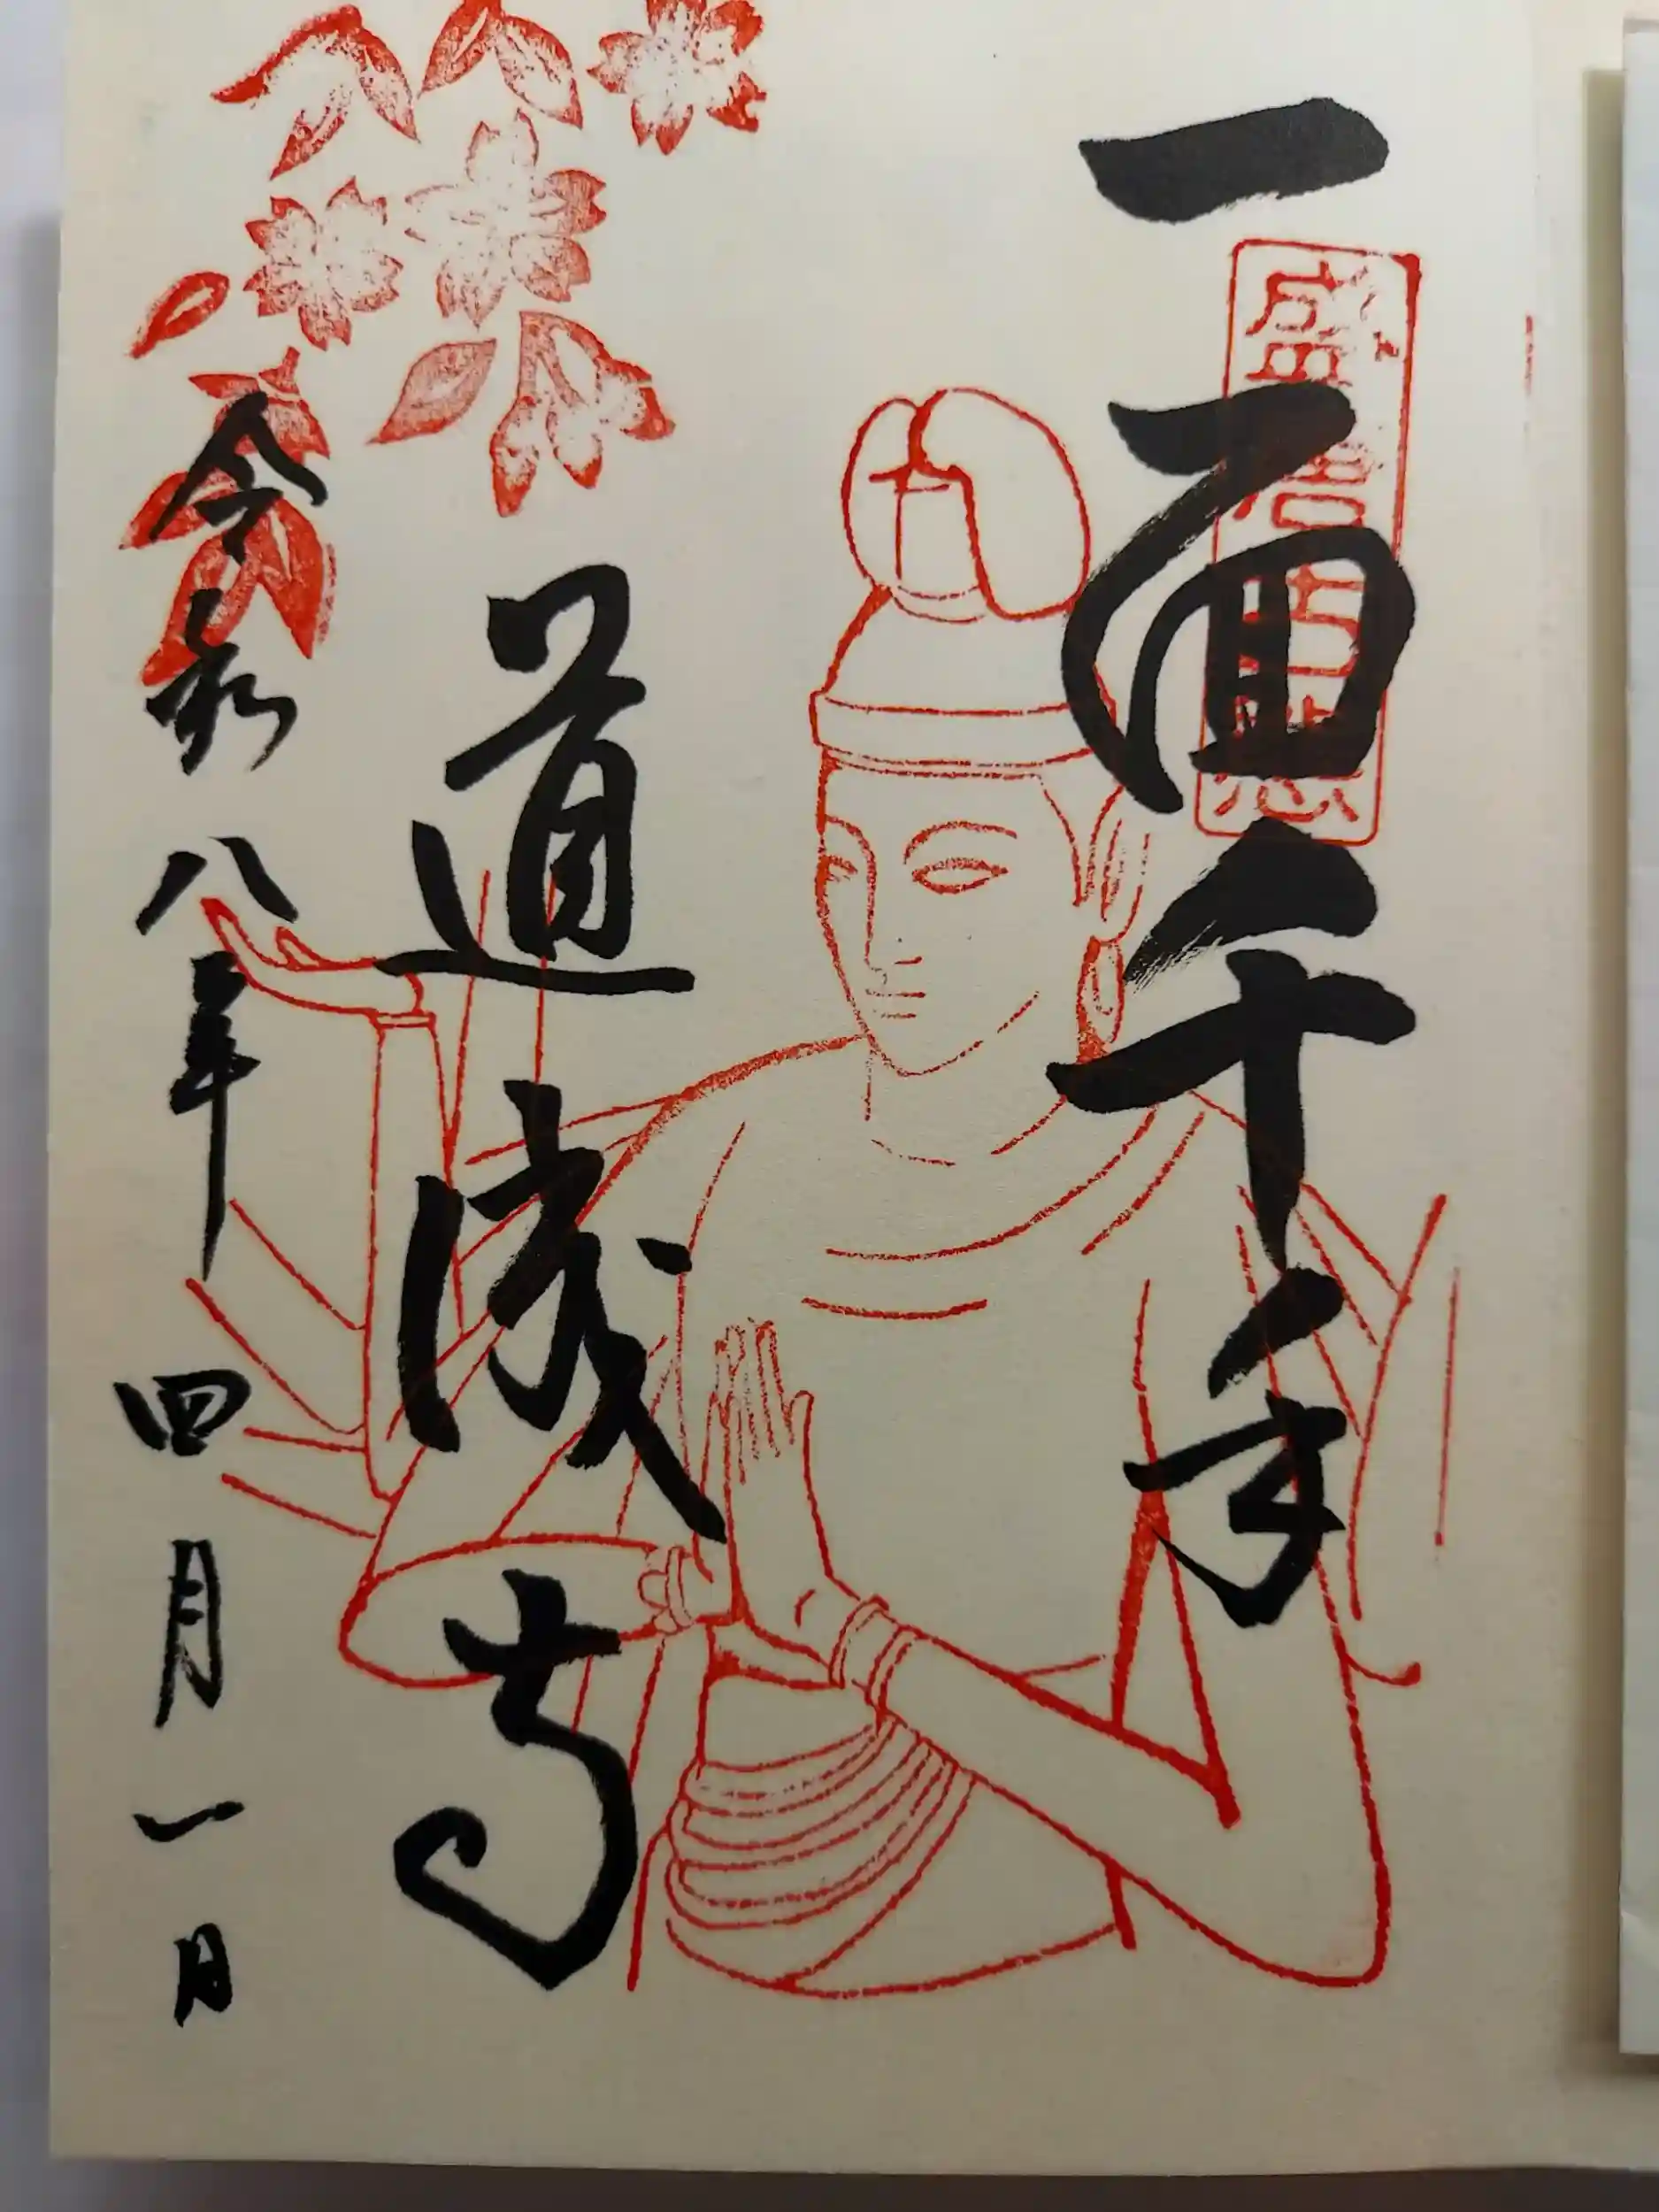 一面千手
道浅寺
令和八年四月一日